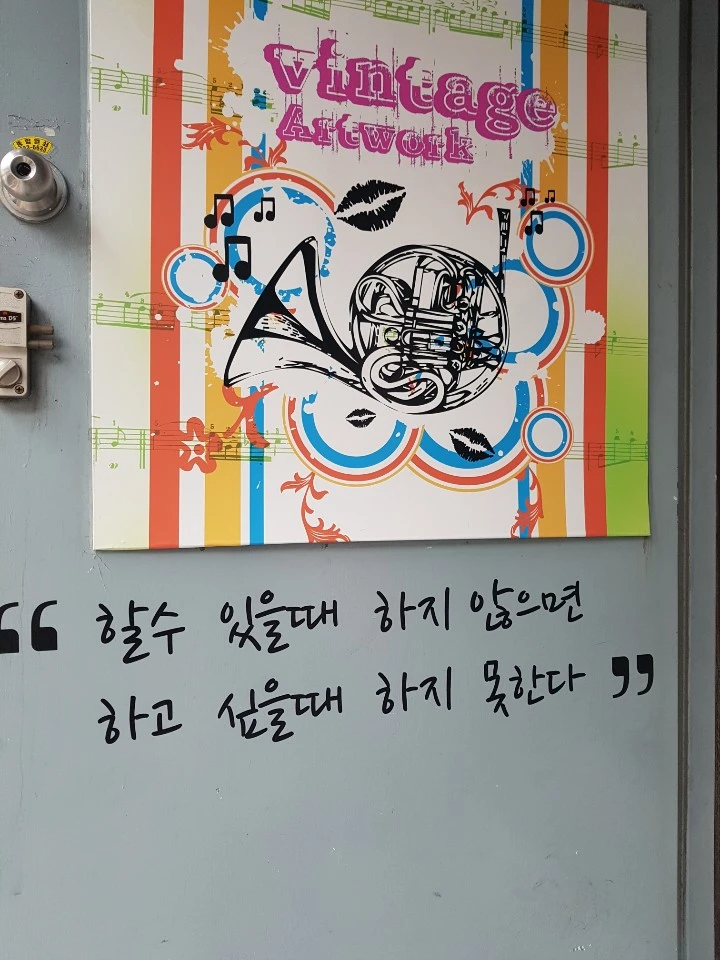 vintage
Artwork
“ 할수 있을때 하지 않으면
하고 싶을때 하지 못한다 ”